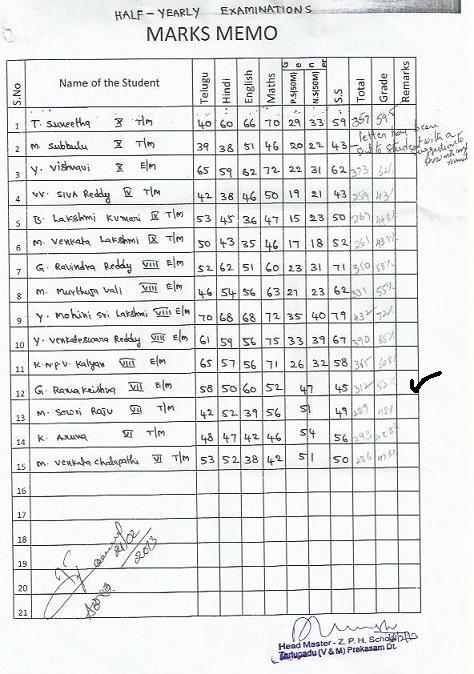 HALF-YEARLY EXAMINATIONS
MARKS MEMO
S.No Name of the Student Telugu Hindi English Maths P.S(50M) N.S(50M) S.S Total Grade Remarks
1 T. Suneetha X T/M 40 60 66 70 29 33 59 357 59.5
2 M Subbulu X T/M 39 38 51 46 20 22 43
3 Y. Vishnavi X E/M 65 59 62 72 22 31 62 373
4 VV. Siva Reddy IX T/M 42 38 46 50 19 21 43 259 43%
5 B. Lakshmi Kumari IX T/M 53 45 36 47 15 23 50 269
6 M. Venkata Lakshmi IX T/M 50 43 35 46 17 18 52 261
7 G. Ravindra Reddy VIII E/M 52 62 51 60 23 31 71 350 58%
8 M. Murthuja Vali VIII E/M 46 54 56 63 27 23 62 331 55%
9 Y. Mohini Sri Lakshmi VIII E/M 70 68 68 72 35 40 79 432 72%
10 Y. Venkateswara Reddy VIII E/M 61 59 56 75 33 39 67 390 65%
11 K.N.P.V. Kalyan VIII E/M 65 57 56 71 26 32 58 365
12 G. Ramakrishna VII E/M 58 50 60 52 47 45 312 52%
13 M. Sowri Raju VII T/M 42 52 39 56 51 49 289 48%
14 K. Aruna VI T/M 48 47 42 46 54 56 293
15 M. Venkata Chalapathi VI T/M 53 52 38 42 51 50 286
16
17
18
19
20
21
21/02
2013
Head Master - Z. P. H. School
Tarlupadu (V & M) Prakasam Dt.